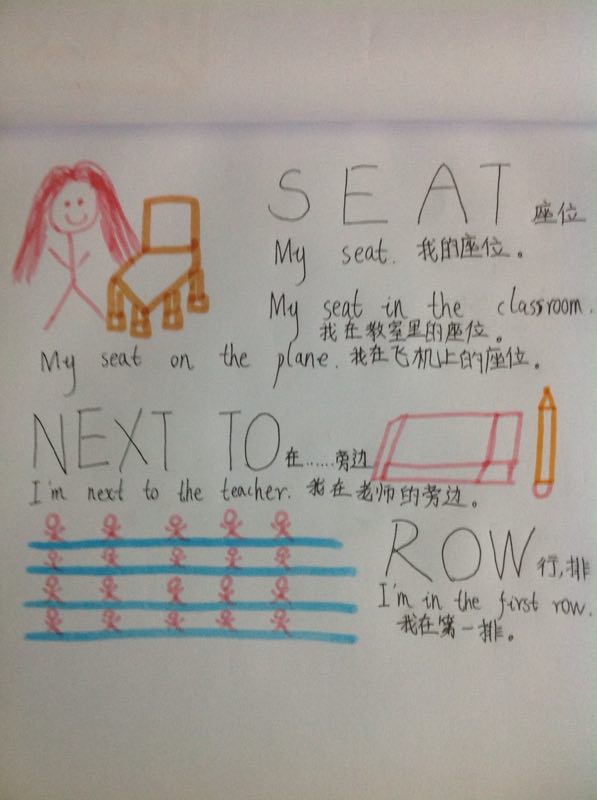 SEAT 座位
My seat. 我的座位。
My seat in the classroom.
我在教室里的座位。
My seat on the plane. 我在飞机上的座位。
NEXT TO 在……旁边
I'm next to the teacher. 我在老师的旁边。
ROW 行,排
I'm in the first row.
我在第一排。